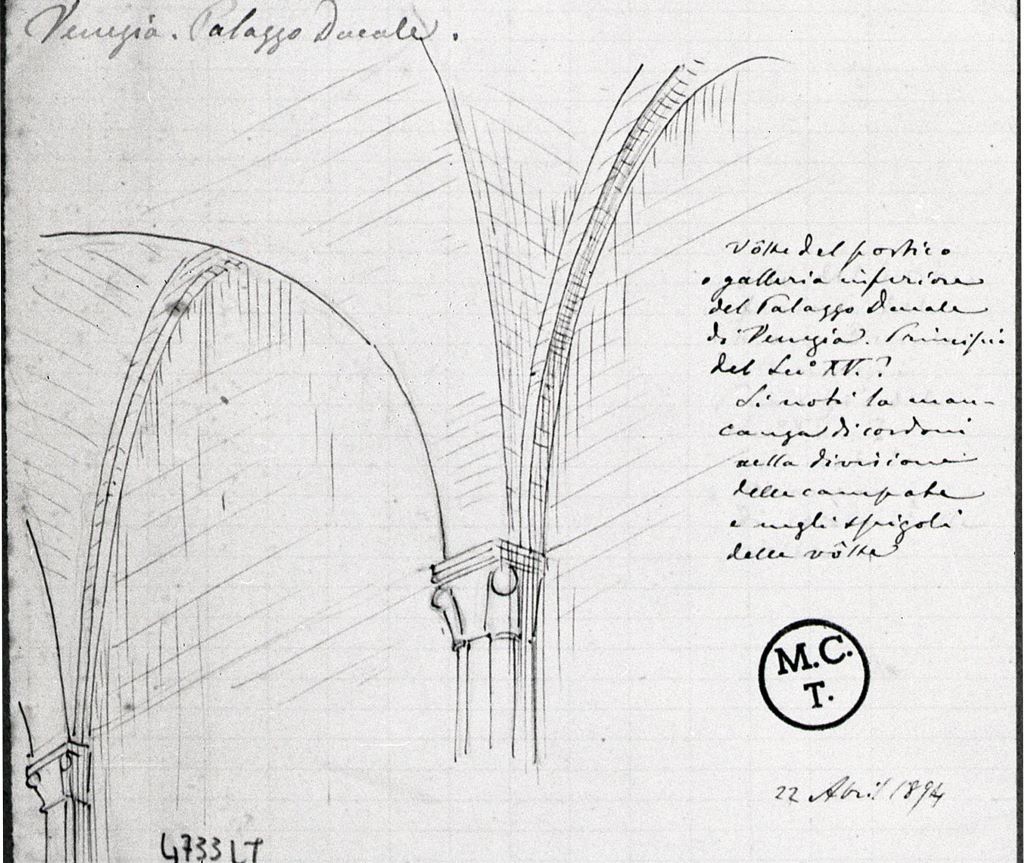 Venezia. Palazzo Ducale.
Vôlte del portico
o galleria inferiore
del Palazzo Ducale
di Venezia. Principii
del Sec.º XV.?
Si noti la man-
canza di cordoni
nella divisione
delle campate
e negli spigoli
delle vôlte
M.C.
T.
22 Abril 1894
4733 LT